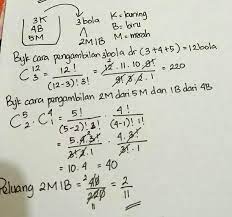 3K 3 bola K = kuning
4B B = biru
5M 2M 1B M = merah
Byk cara pengambilan 3bola dr (3+4+5) = 12bola
C 12 3 = 12! / (12-3)! 3! = 12.11.10.9! / 9! 3.2.1 = 220
Byk cara pengambilan 2M dari 5M dan 1B dari 4B
C 5 2 . C 4 1 = 5! / (5-2)! 2! . 4! / (4-1)! 1!
= 5.4.3! / 3! 2.1 . 4.3! / 3! 1
= 10.4 = 40
Peluang 2M1B = 40 / 220 = 2 / 11